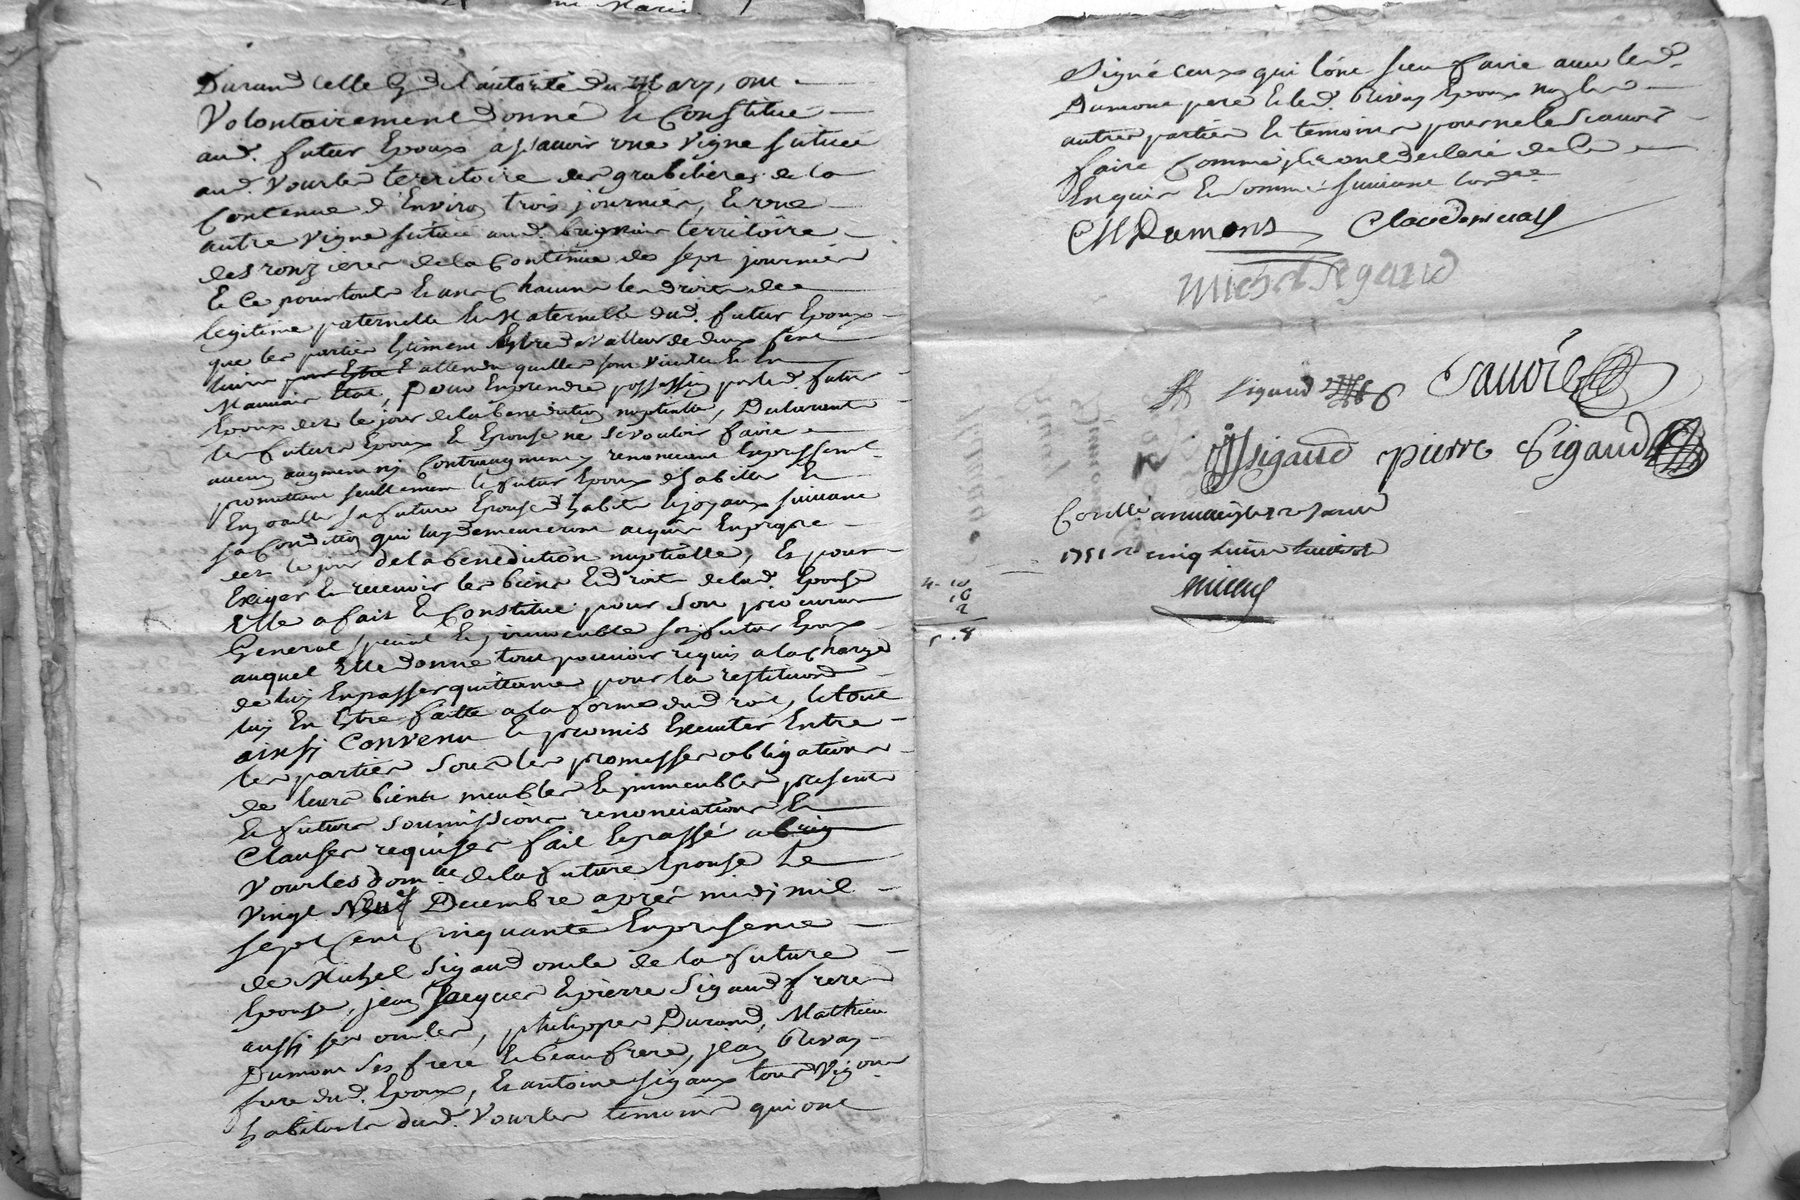 Durand celle cy de l'autorité du Mary, ont
Volontairement donné et Constitué
aud. futur Epoux assavoir une vigne située
aud. Vourles territoire des grabilieres de la
Contenue d'Environ trois journées, et une
autre vigne située aud. territoire
des ronzieres de la Contenue de sept journées
Et ce pour toute et un Chacuns les droits de
legitime paternelle et Maternelle dud. futur Epoux
que les parties Estiment Estre de valleur de deux Cent
livres attendu quelles sont vieilles et en
Mauvais Etat, pour En prendre possession par led. futur
Epoux des le jour de la benediction nuptialle, Declarent
les futurs Epoux et Epouse ne se vouloir faire
aucun augment ny Contreaugment y renoncent Expressement
promettant seullement le futur Epoux d'habiller et
Enjoailler sa future Epouse d'habits et joyaux suivant
sa Condition qui luy demeureront acquis En propre
des le jour de la benediction nuptialle, Et pour
Exiger et recevoir les biens et droits de lad. Epouse
Elle a fait et Constitué pour son procureur
General special et irrevocable son futur Epoux
auquel Elle donne tout pouvoir requis a la Charge
de luy En passer quittance pour la restitution
luy En Estre faitte a la forme du droit, le tout
ainsy Convenu et promis Executer Entre
les parties sous les promesses obligations
de leurs biens meubles et immeubles presents
Et futurs soumissions renonciations et
Clauses requises fait et passé a
Vourles dom.le de la future Epouse Le
Vingt Neuf Decembre après midy mil
sept Cent Cinquante En presence
de Michel Sigaud oncle de la future
Epouse, jean Jacques et pierre Sigaud freres
aussy ses oncles, philippe Durand, Mathieu
Dumont ses frere et beau frere, jean
frere dud. Epoux, Et antoine sigaux tous Vignerons
habitants dud. Vourles temoins qui ont
signé Ceux qui l'ont sceu faire avec led.
Dumont pere et led. Epoux non les
autres parties et temoins pour ne le Scavoir
faire Comme ils ont declaré de ce
Enquis et sommé suivant l'ord.ce
CM Dumons
Michel Sigaud
Sigaud
JJ Sigaud pierre Sigaud
Con.llé
1751 r. cinq livres huit s.
4. 10
10
2
5. 8